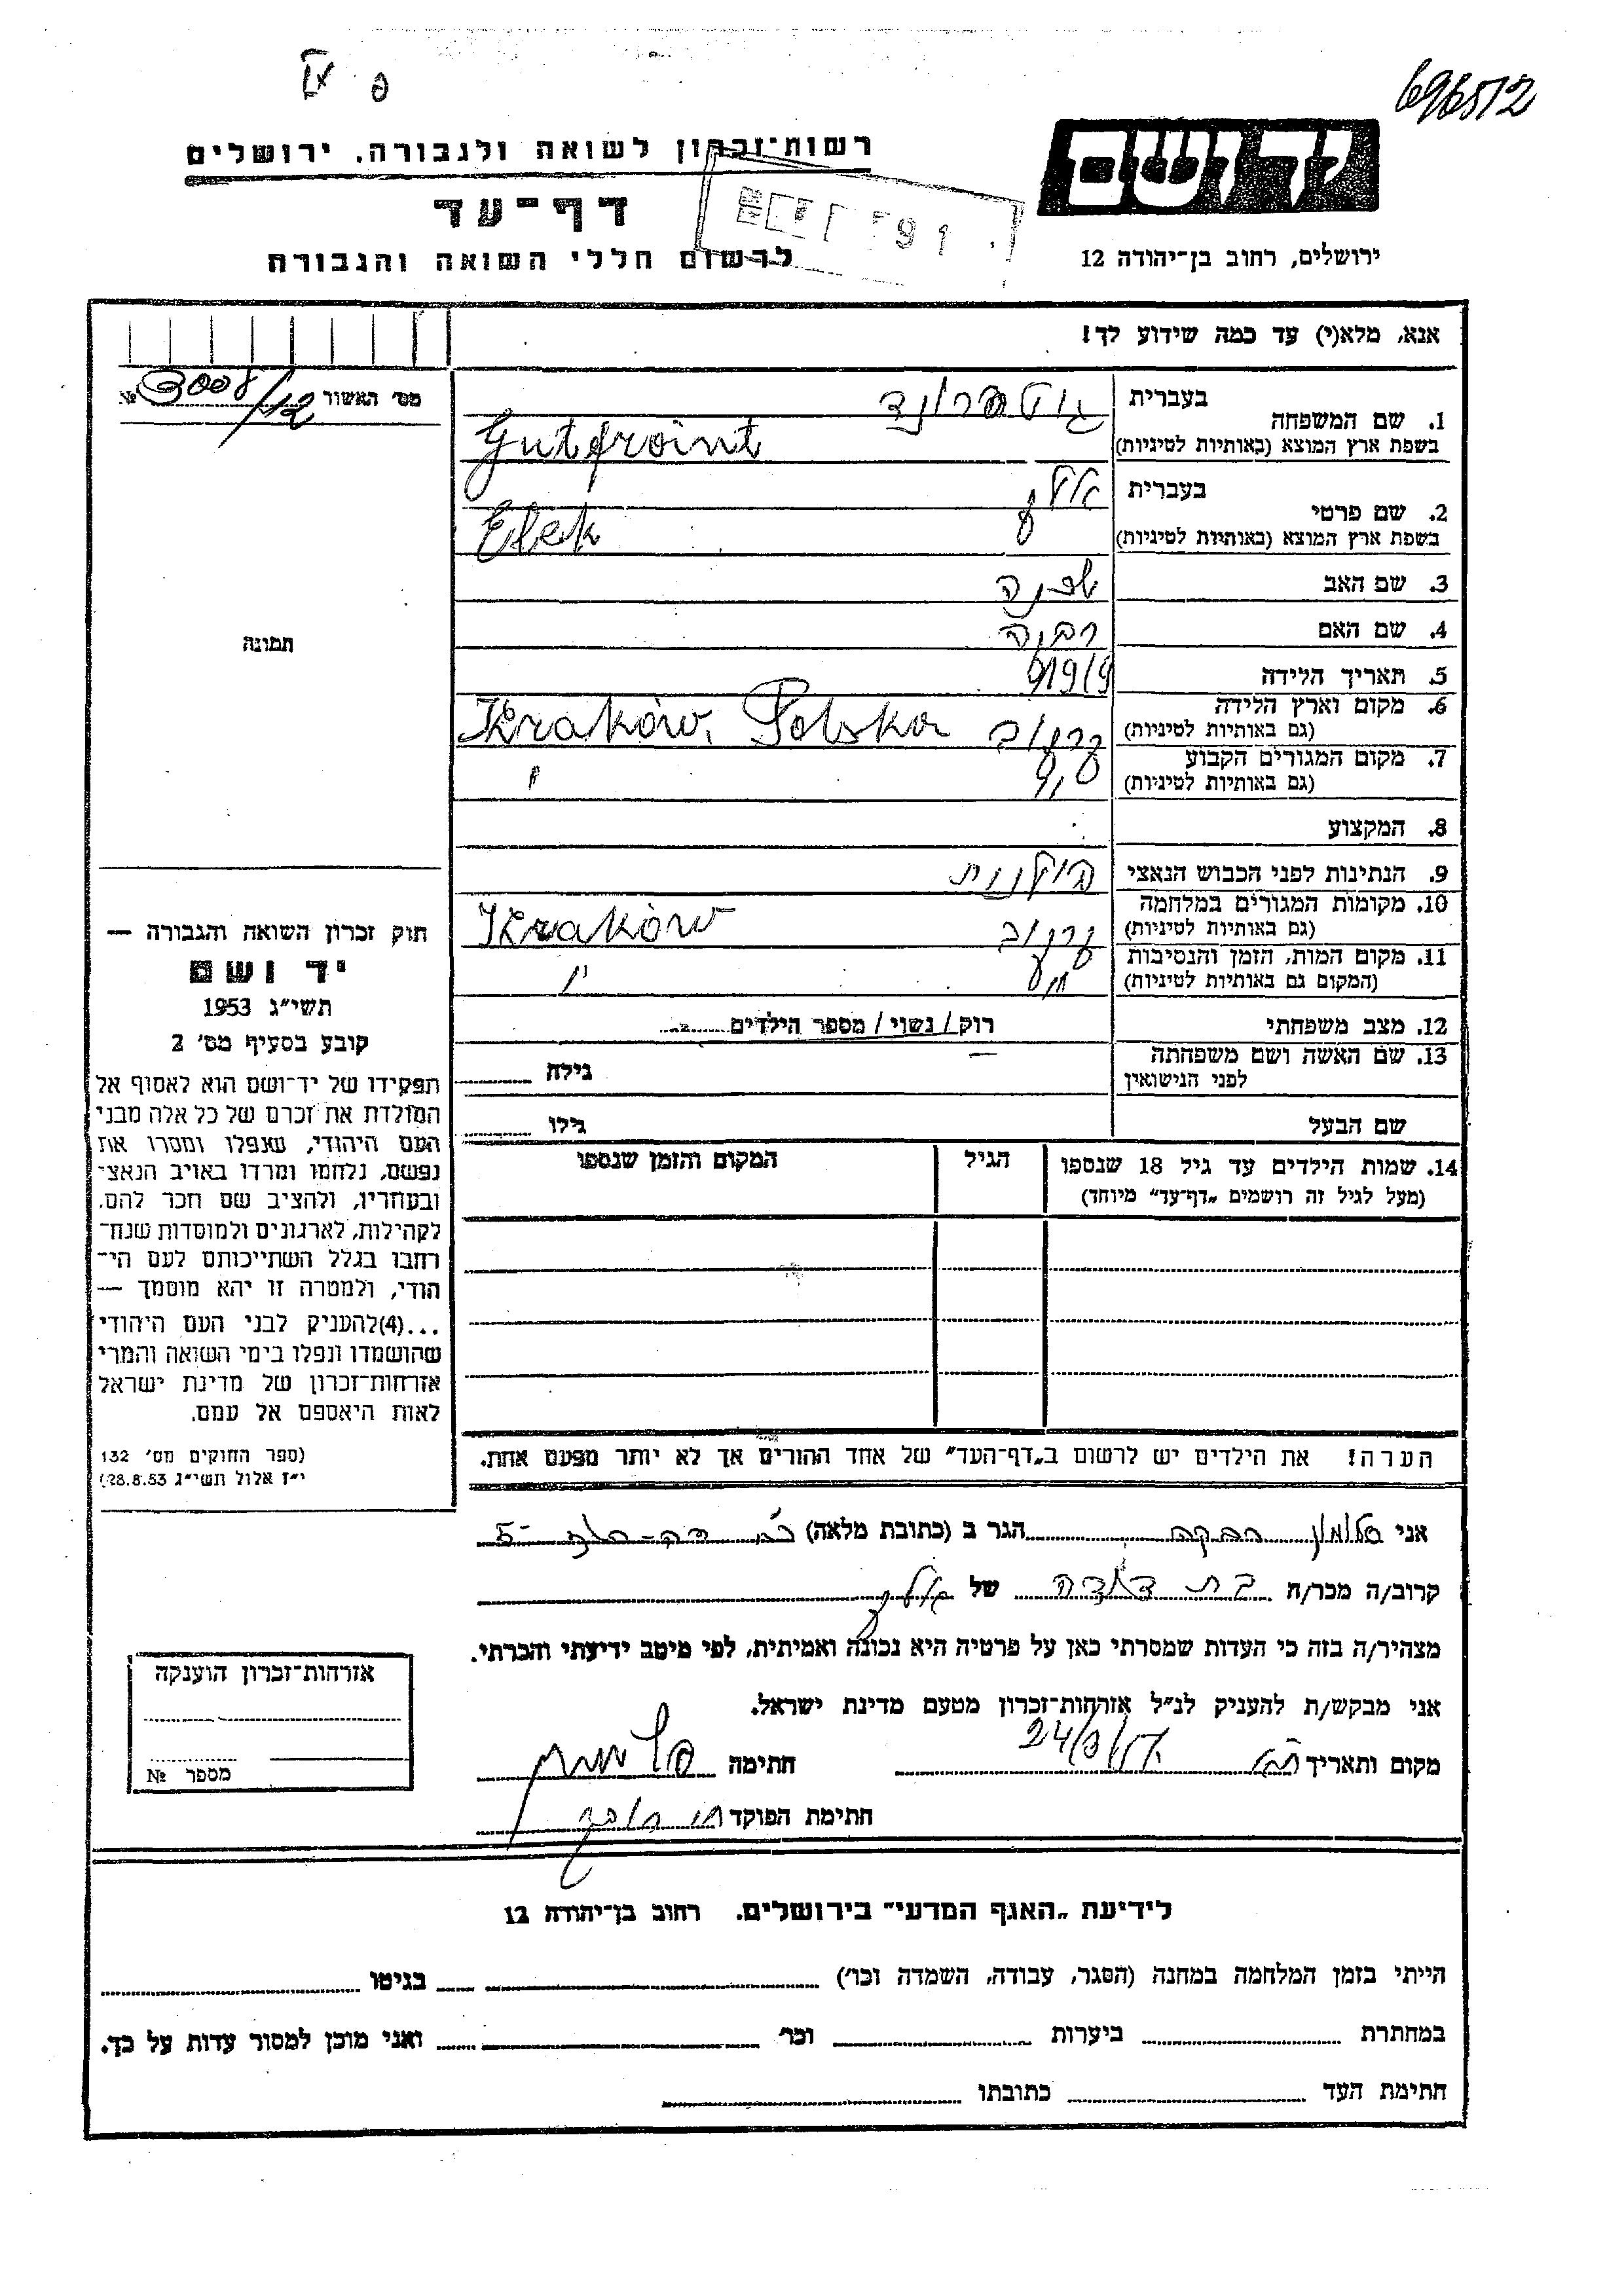 696512
רשות־זכרון לשואה ולגבורה. ירושלים
ידושם
דף־עד
לרשום חללי השואה והגבורה
ירושלים, רחוב בן־יהודה 12
אנא, מלא(י) עד כמה שידוע לך!
מס׳ האשור № 3008/12
1. שם המשפחה בעברית גוטפרונד
בשפת ארץ המוצא (באותיות לטיניות) Gutfroint
2. שם פרטי בעברית אלק
בשפת ארץ המוצא (באותיות לטיניות) Elek
3. שם האב
4. שם האם רבקה
תמונה
5. תאריך הלידה 1919
6. מקום וארץ הלידה
(גם באותיות לטיניות) Kraków, Polska
7. מקום המגורים הקבוע
(גם באותיות לטיניות) "
8. המקצוע
9. הנתינות לפני הכבוש הנאצי פולנית
10. מקומות המגורים במלחמה
(גם באותיות לטיניות) Kraków
11. מקום המות, הזמן והנסיבות
(המקום גם באותיות לטיניות) "
12. מצב משפחתי רוק / נשוי / מספר הילדים
13. שם האשה ושם משפחתה
לפני הנישואין גילה
שם הבעל גילו
14. שמות הילדים עד גיל 18 שנספו הגיל המקום והזמן שנספו
(מעל לגיל זה רושמים „דף־עד״ מיוחד)
הערה! את הילדים יש לרשום ב„דף־העד״ של אחד ההורים אך לא יותר מפעם אחת.
חוק זכרון השואה והגבורה —
יד ושם
תשי״ג 1953
קובע בסעיף מס׳ 2
תפקידו של יד־ושם הוא לאסוף אל
המולדת את זכרם של כל אלה מבני
העם היהודי, שנפלו ומסרו את
נפשם, נלחמו ומרדו באויב הנאצי
ובעוזריו, ולהציב שם וזכר להם,
לקהילות, לארגונים ולמוסדות שנח־
רחבו בגלל השתייכותם לעם הי־
הודי, ולמטרה זו יהא מוסמך —
...(4)להעניק לבני העם היהודי
שהושמדו ונפלו בימי השואה והמרי
אזרחות־זכרון של מדינת ישראל
לאות היאספם אל עמם.
(ספר החוקים מס׳ 132
י״ז אלול תשי״ג 28.8.53)
אני סלומון רבקה הגר ב (כתובת מלאה)
קרוב/ה מכר/ה בת דודה של אלק
מצהיר/ה בזה כי העדות שמסרתי כאן על פרטיה היא נכונה ואמיתית, לפי מיטב ידיעתי והכרתי.
אני מבקש/ת להעניק לנ״ל אזרחות־זכרון מטעם מדינת ישראל.
מקום ותאריך חתימה
חתימת הפוקד
אזרחות־זכרון הוענקה
מספר №
לידיעת „האגף המדעי״ בירושלים. רחוב בן־יהודה 12
הייתי בזמן המלחמה במחנה (הסגר, עבודה, השמדה וכו׳) בגיטו
במחתרת ביערות וכו׳ ואני מוכן למסור עדות על כך.
חתימת העד כתובתו